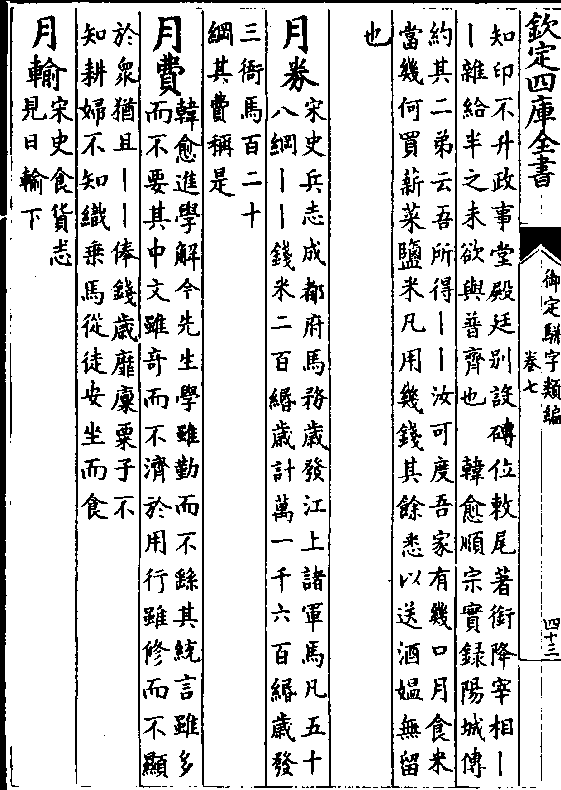 欽定四庫全書
御定駢字類編
卷七
四十三
知印不升政事堂殿廷别設磚位敕尾著銜降宰相丨
丨雜給半之未欲與普齊也　韓愈順宗實録陽城傳
約其二弟云吾所得丨丨汝可度吾家有幾口月食米
當幾何買薪菜鹽米凡用幾錢其餘悉以送酒媪無留
也
月券
宋史兵志成都府馬務歲發江上諸軍馬凡五十
八綱丨丨錢米二百緡歲計萬一千六百緡歲發
三衙馬百二十
綱其費稱是
月費
韓愈進學解今先生學雖勤而不繇其統言雖多
而不要其中文雖奇而不濟於用行雖修而不顯
於衆猶且丨丨俸錢歲靡廩粟子不
知耕婦不知織乗馬從徒安坐而食
月輸
宋史食貨志
見日輸下